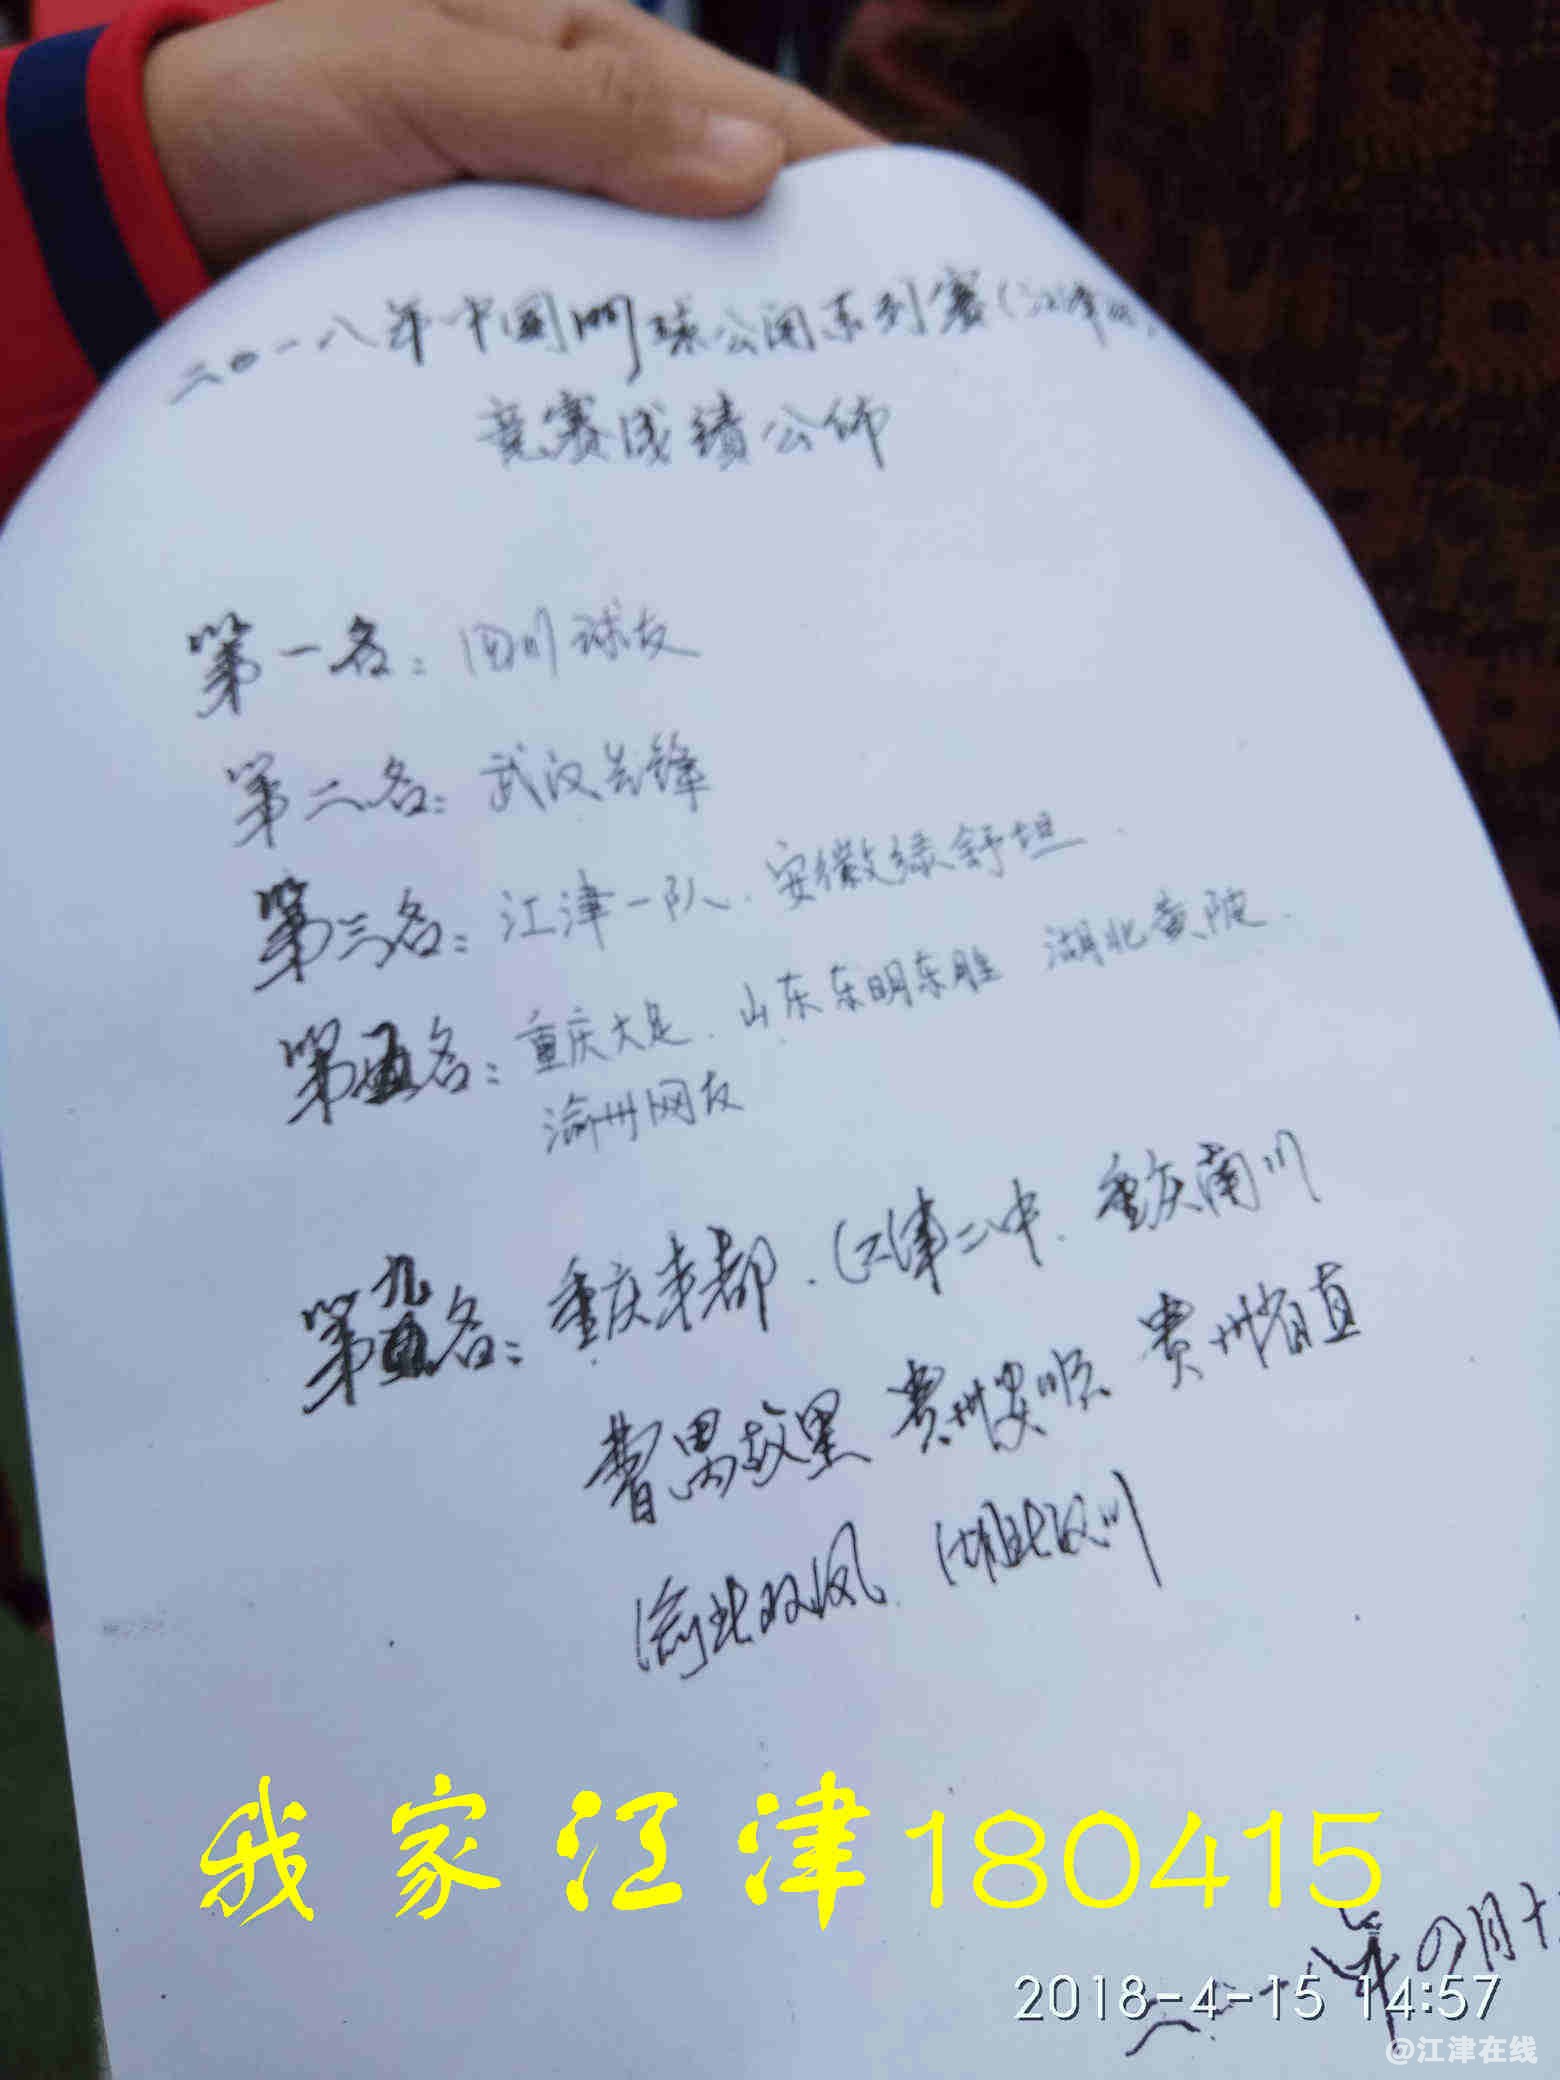 二〇一八年中国网球公开系列赛(江津
竞赛成绩公布
第一名: 四川球友
第二名: 武汉先锋
第三名: 江津一队. 安徽绿舒坦.
第五名: 重庆大足. 山东东明东胜 湖北黄陂.
渝州网友
第九名: 重庆丰都. 江津二中. 重庆南川
曹禺故里 贵州安顺 贵州省直
渝北双凤. 湖北汉川
我家江津180415
年四月十
2018-4-15 14:57
@江津在线